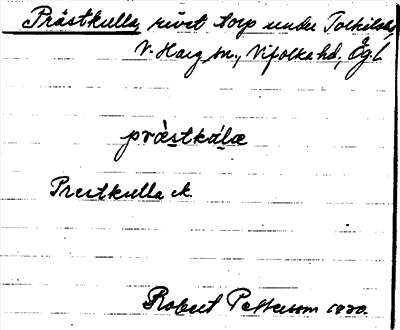 Prästkulla, rivet torp under Tolkilstorp
V. Harg sn., Vifolka hd, Ög l.
prä̀stkálæ
Prestkulla ek.
Robert Petterson 1930.